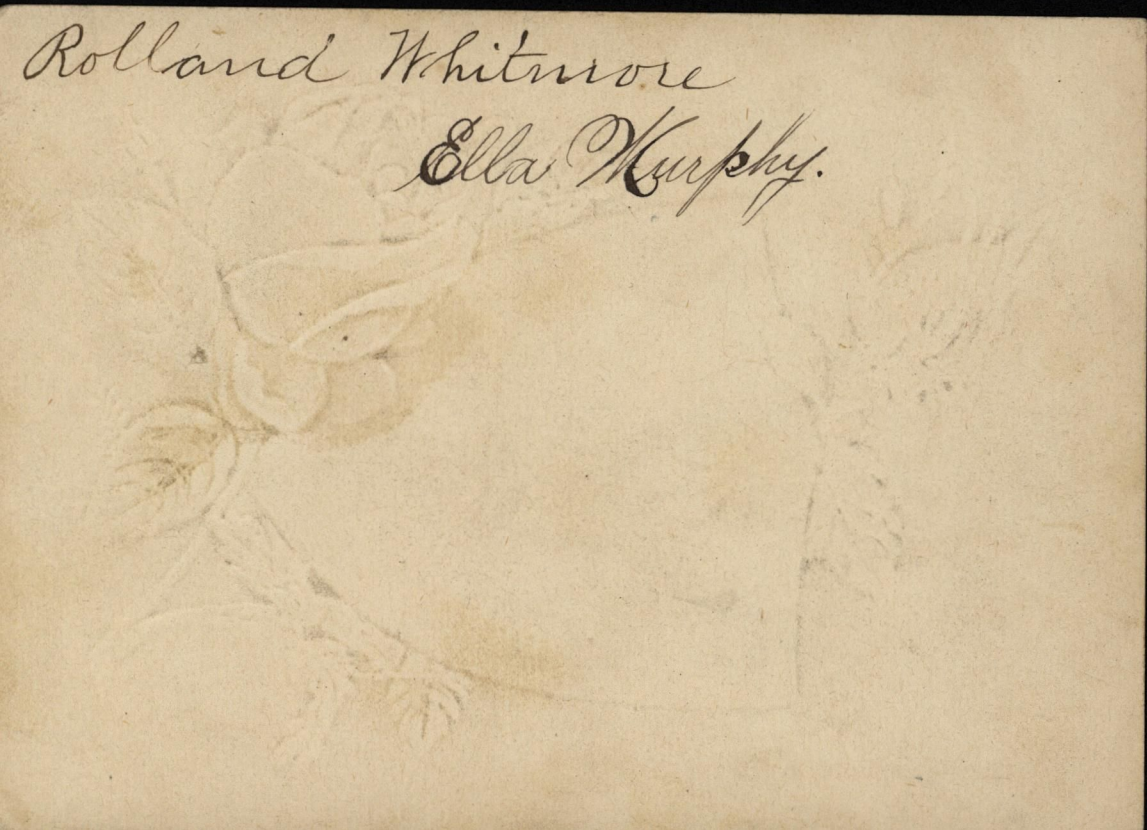 Rolland Whitmore
Ella Murphy.